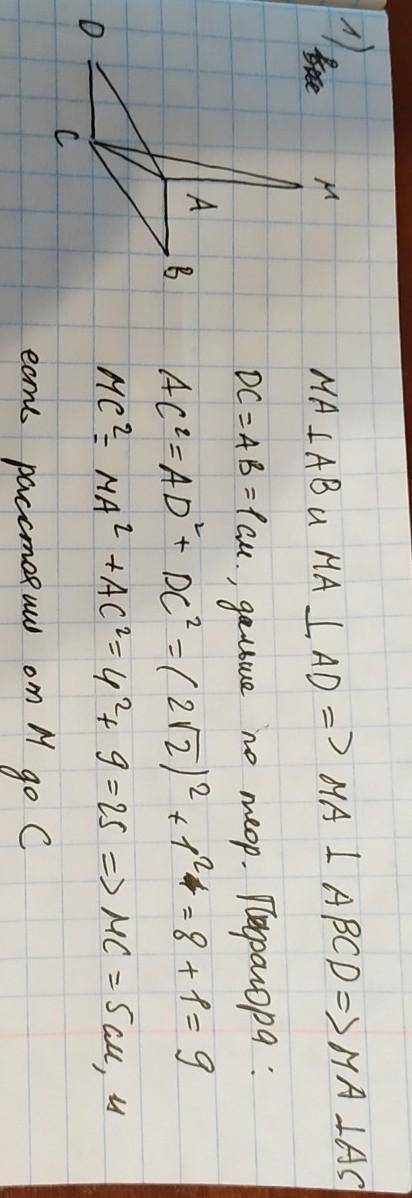 1)
M
A
B
D
C
MA ⊥ AB и MA ⊥ AD => MA ⊥ ABCD => MA ⊥ AC
DC = AB = 1 см., дальше по теор. Пифагора:
AC² = AD² + DC² = (2√2)² + 1² = 8 + 1 = 9
MC² = MA² + AC² = 4² + 9 = 25 => MC = 5 см, и
есть расстояние от M до C